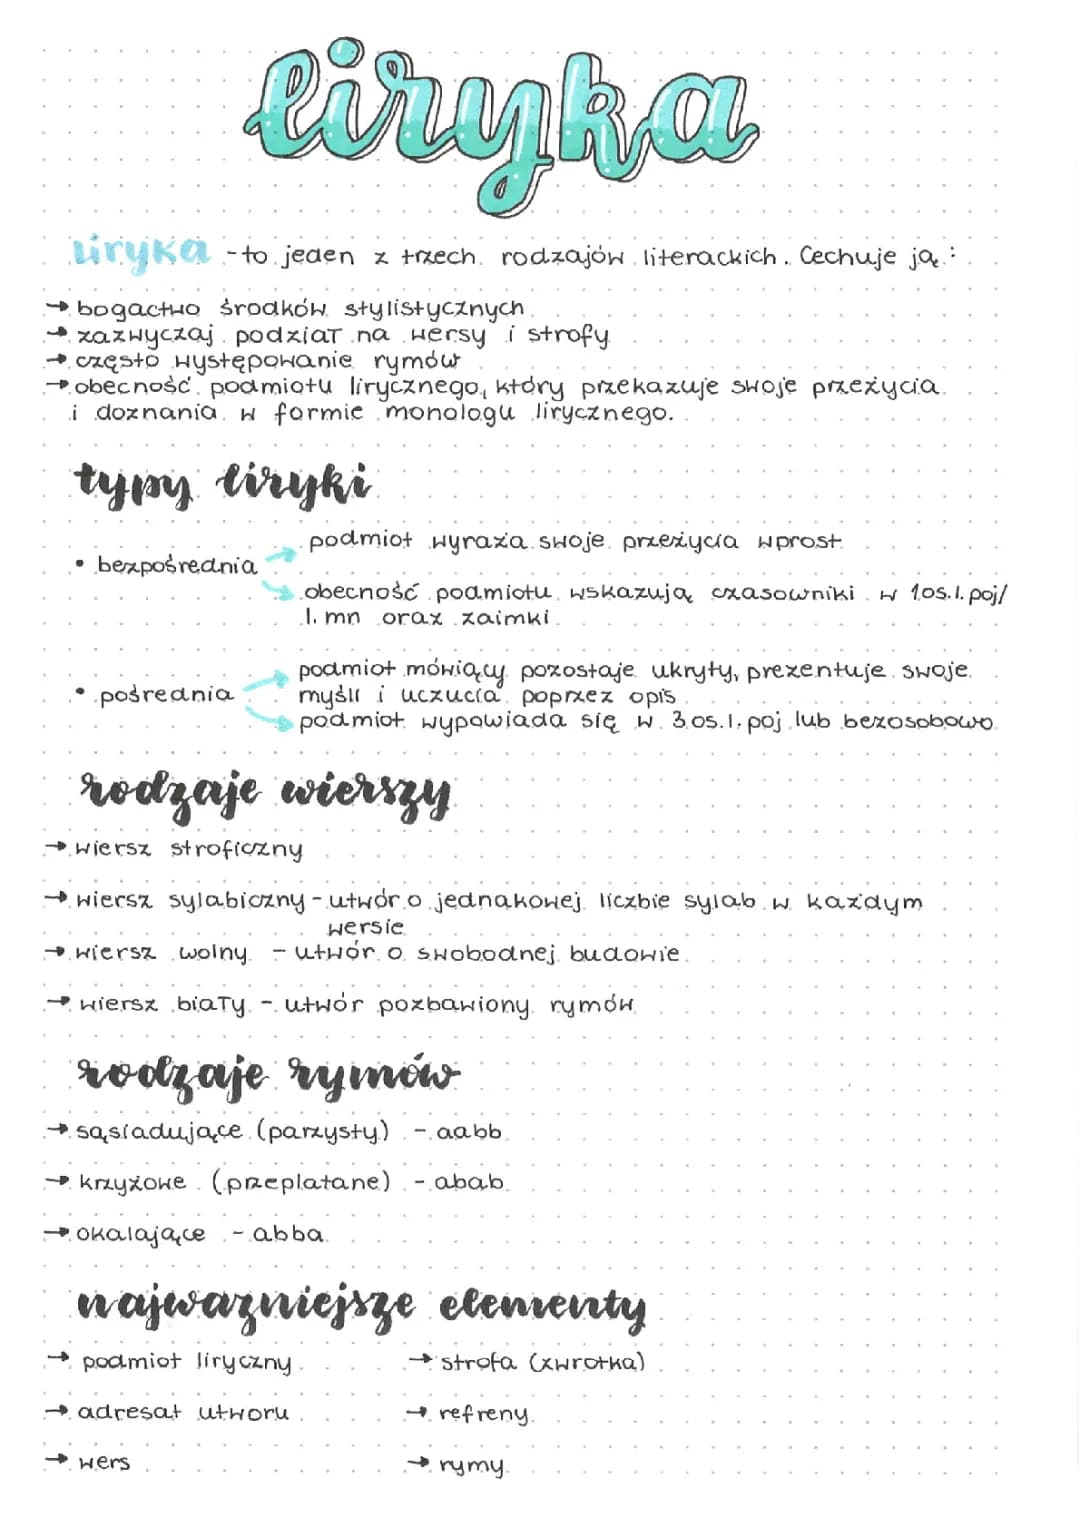 liryka
liryka - to jeden z trzech rodzajów literackich. Cechuje ją:
→ bogactwo środków stylistycznych
→ zazwyczaj podział na wersy i strofy
→ często występowanie rymów
→ obecność podmiotu lirycznego, który przekazuje swoje przeżycia
i doznania w formie monologu lirycznego.
typy liryki
podmiot wyraża swoje przeżycia wprost
• bezpośrednia
obecność podmiotu wskazują czasowniki w 1os.l.poj/
l.mn oraz zaimki
podmiot mówiący pozostaje ukryty, prezentuje swoje
• pośrednia
myśli i uczucia poprzez opis
podmiot wypowiada się w 3.os.l.poj lub bezosobowo
rodzaje wierszy
→ wiersz stroficzny
→ wiersz sylabiczny - utwór o jednakowej liczbie sylab w każdym
wersie
→ wiersz wolny - utwór o swobodnej budowie
→ wiersz biały - utwór pozbawiony rymów
rodzaje rymów
→ sąsiadujące (parzysty) - aabb
→ krzyżowe (przeplatane) - abab
→ okalające - abba
najwazniejsze elementy
→ podmiot liryczny
→ strofa (zwrotka)
→ adresat utworu
→ refreny
→ wers
→ rymy